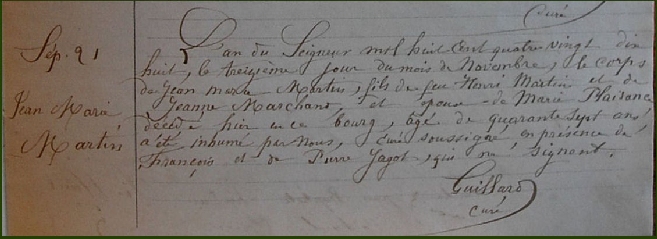 Curé
Sép. 91
Jean Marie
Martin
L'an du Seigneur mil huit cent quatre vingt dix
huit, le treizième jour du mois de Novembre, le corps
de Jean marie Martin, fils de feu Henri Martin et de
Jeanne Marchand, et époux de Marie Plaisance
décédé hier en ce bourg, âgé de quarante sept ans
a été inhumé par nous, curé soussigné, en présence de
François et de Pierre Jagot, qui ne signent.
Guillard
curé